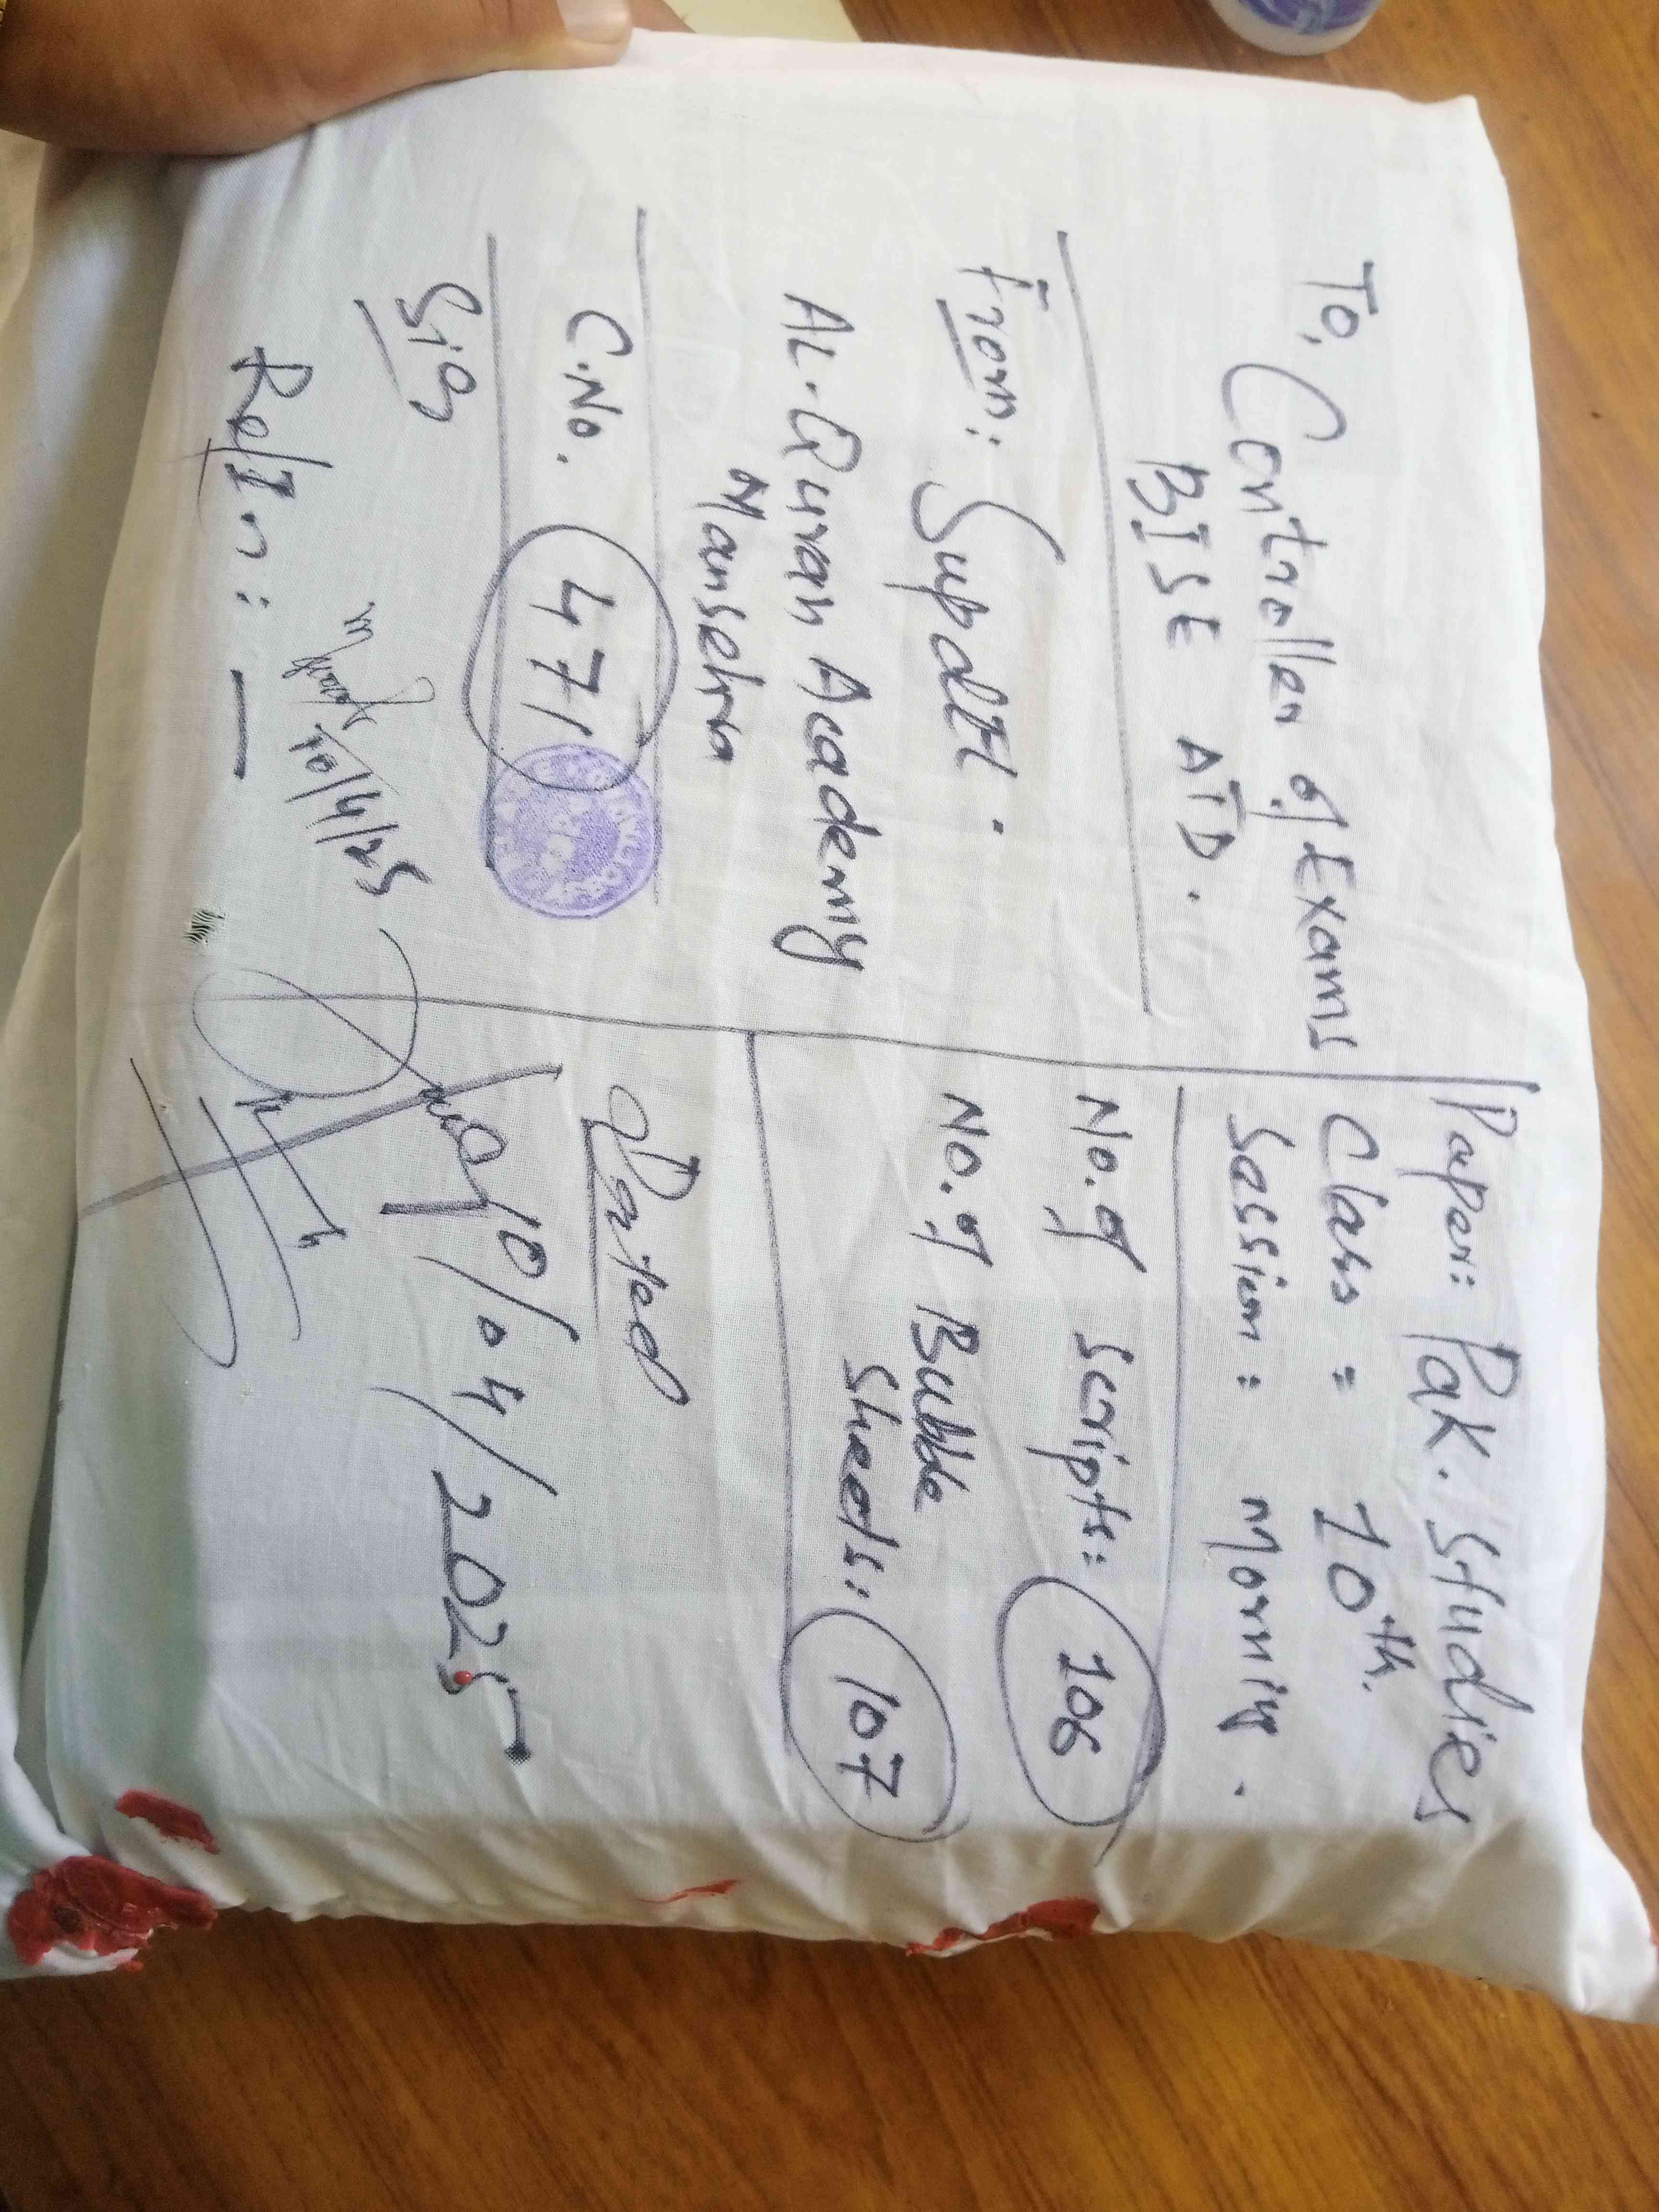 To,
Controller of Exams
BISE ATD.
From: Supdtt.
AL-Quran Academy
Mansehra
C.No. 471
Sig
Re/In: —
10/4/25
Paper: Pak. Studies
Class = 10th.
Session: Morning.
No. of Scripts: 106
No. of Bubble
Sheets: 107
10/04/2025